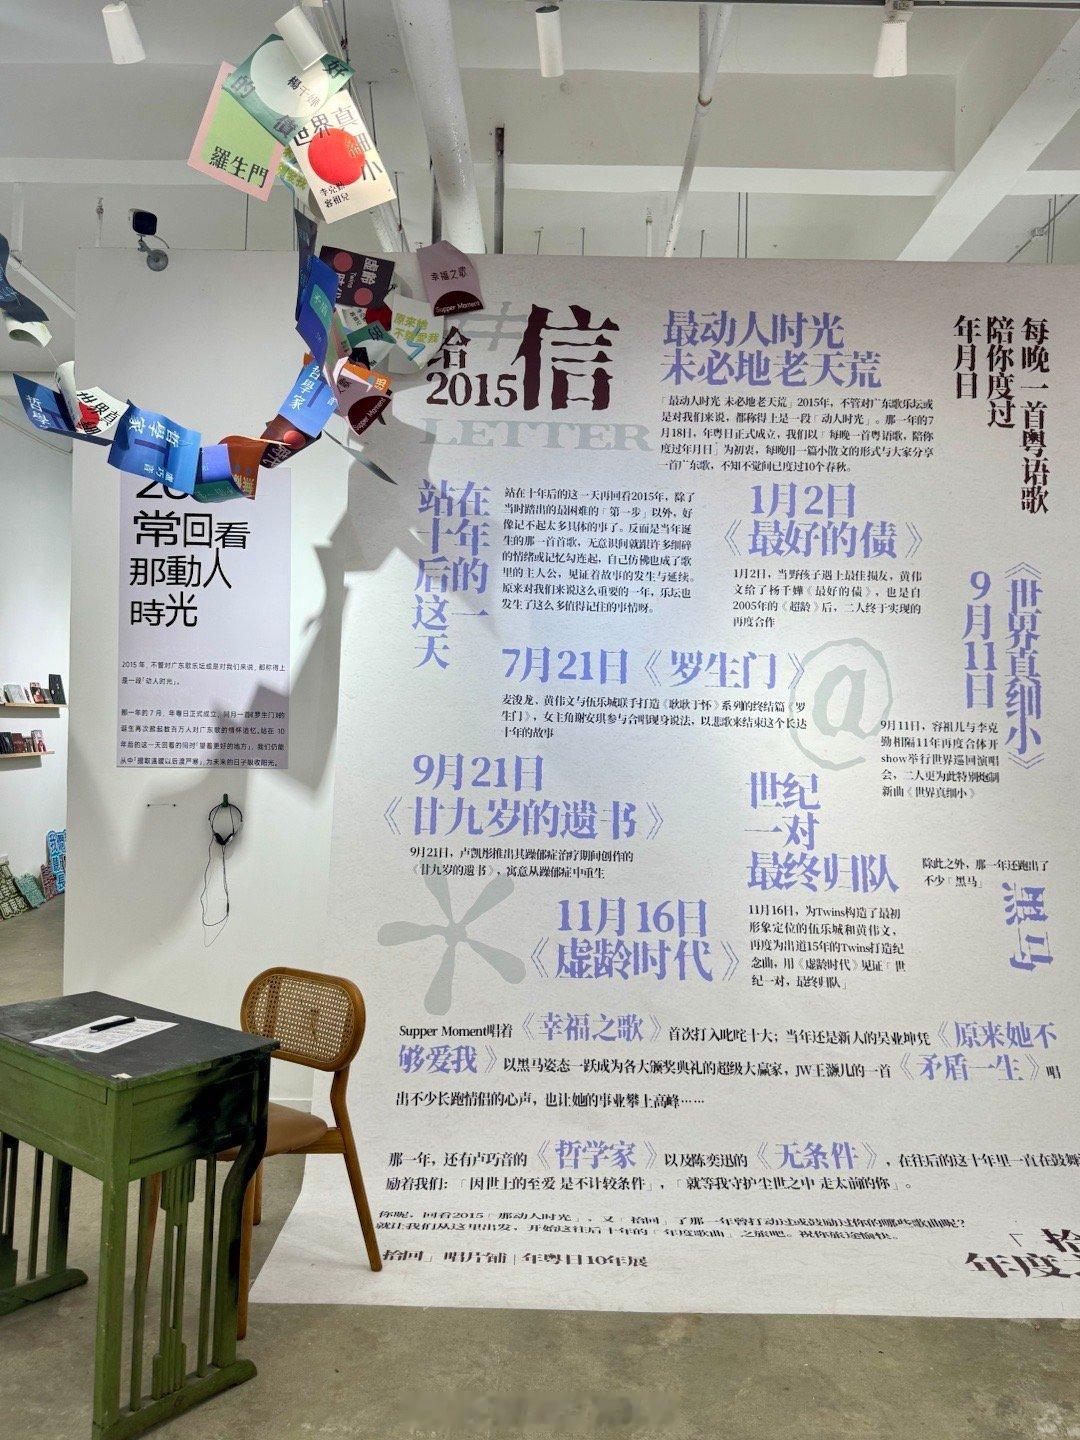 的
好
債
楊千嬅
羅生門
世界真細小
李克勤
容祖兒
虛齡
Twins
幸福之歌
Supper Moment
原來她
不夠愛我
哲學家
哲學
哲學家
盧巧音
常回看
那動人
時光
2015 年, 不管对广东歌乐坛或是对我们来说, 都称得上
是一段「动人时光」。
那一年的 7 月, 年粤日正式成立, 同月一首《罗生门》的
诞生再次掀起数百万人对广东歌的情怀追忆。站在 10
年后的这一天回看的同时「望着更好的地方」, 我们仍能
从中「摄取温暖以后渡严寒」为未来的日子吸收阳光。
给
2015
信
LETTER
最动人时光
未必地老天荒
「最动人时光 未必地老天荒」2015年，不管对广东歌乐坛或
是对我们来说，都称得上是一段「动人时光」。那一年的7
月18日，年粤日正式成立，我们以「每晚一首粤语歌，陪你
度过年月日」为初衷，每晚用一篇小散文的形式与大家分享
一首广东歌，不知不觉间已度过10个春秋。
每晚一首粤语歌
陪你度过
年月日
站在
十年
后的
这一
天
站在十年后的这一天再回看2015年，除了
当时踏出的最困难的「第一步」以外，好
像记不起太多具体的事了。反而是当年诞
生的那一首首歌，无意识间就跟许多细碎
的情绪或记忆勾连起，自己仿佛也成了歌
里的主人公，见证着故事的发生与延续。
原来对我们来说这么重要的一年，乐坛也
发生了这么多值得记住的事情呀。
1月2日
《最好的债》
1月2日，当野孩子遇上最佳损友，黄伟
文给了杨千嬅《最好的债》，也是自
2005年的《超龄》后，二人终于实现的
再度合作
7月21日《罗生门》
麦浚龙、黄伟文与伍乐城联手打造《耿耿于怀》系列的终结篇《罗
生门》，女主角谢安琪参与合唱现身说法，以悲歌来结束这个长达
十年的故事
@
《世界真细小》
9月11日
9月11日，容祖儿与李克
勤相隔11年再度合体开
show举行世界巡回演唱
会，二人更为此特别炮制
新曲《世界真细小》
9月21日
《廿九岁的遗书》
9月21日，卢凯彤推出其躁郁症治疗期间创作的
《廿九岁的遗书》，寓意从躁郁症中重生
世纪
一对
最终归队
11月16日
《虚龄时代》
11月16日，为Twins构造了最初
形象定位的伍乐城和黄伟文，
再度为出道15年的Twins打造纪
念曲，用《虚龄时代》见证「世
纪一对，最终归队」
除此之外，那一年还跑出了
不少「黑马」
黑马
Supper Moment唱着《幸福之歌》首次打入叱咤十大；当年还是新人的吴业坤凭《原来她不
够爱我》以黑马姿态一跃成为各大颁奖典礼的超级大赢家，JW王灏儿的一首《矛盾一生》唱
出不少长跑情侣的心声，也让她的事业攀上高峰……
那一年，还有卢巧音的《哲学家》以及陈奕迅的《无条件》，在往后的这十年里一直在鼓舞
励着我们：「因世上的至爱 是不计较条件」，「就等我守护尘世之中 走太前的你」。
你呢，回看2015「那动人时光」，又「拾回」了那一年曾打动过或鼓励过你的哪些歌曲呢？
就让我们从这里出发，开始这往后十年的「年度歌曲」之旅吧。祝你旅途愉快。
「拾回」唱片铺 | 年粤日10年展
「拾
年度